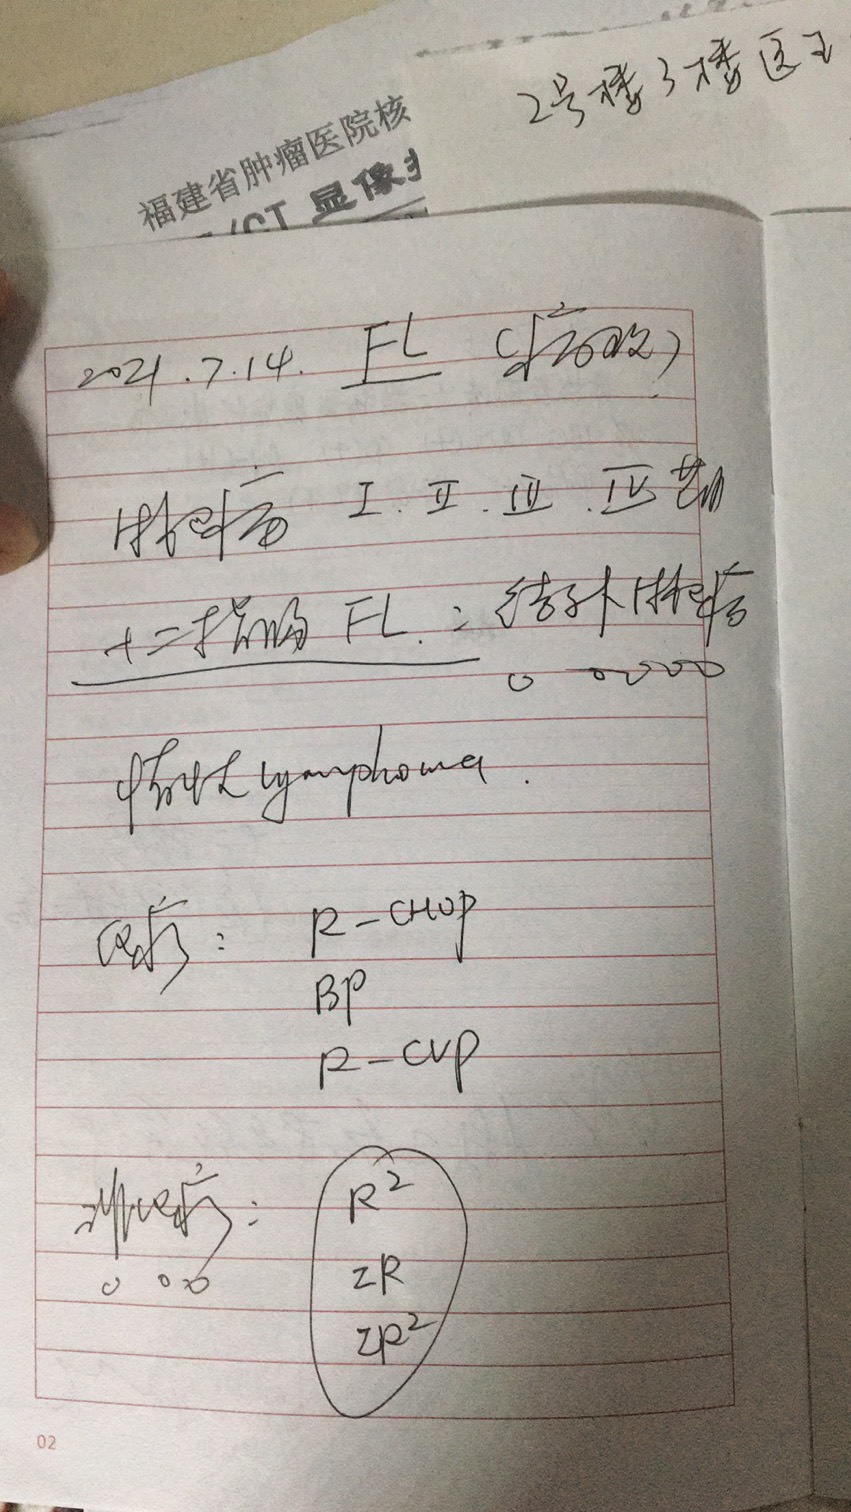 2号楼3楼医
福建省肿瘤医院核
/CT 显像
2021.7.14. FL
淋巴瘤 I. II. III. IV期
十二指肠 FL.: 结外淋巴瘤
惰性 lymphoma.
化疗: R-CHOP
BP
R-CVP
非化疗: R²
ZR
ZR²
02